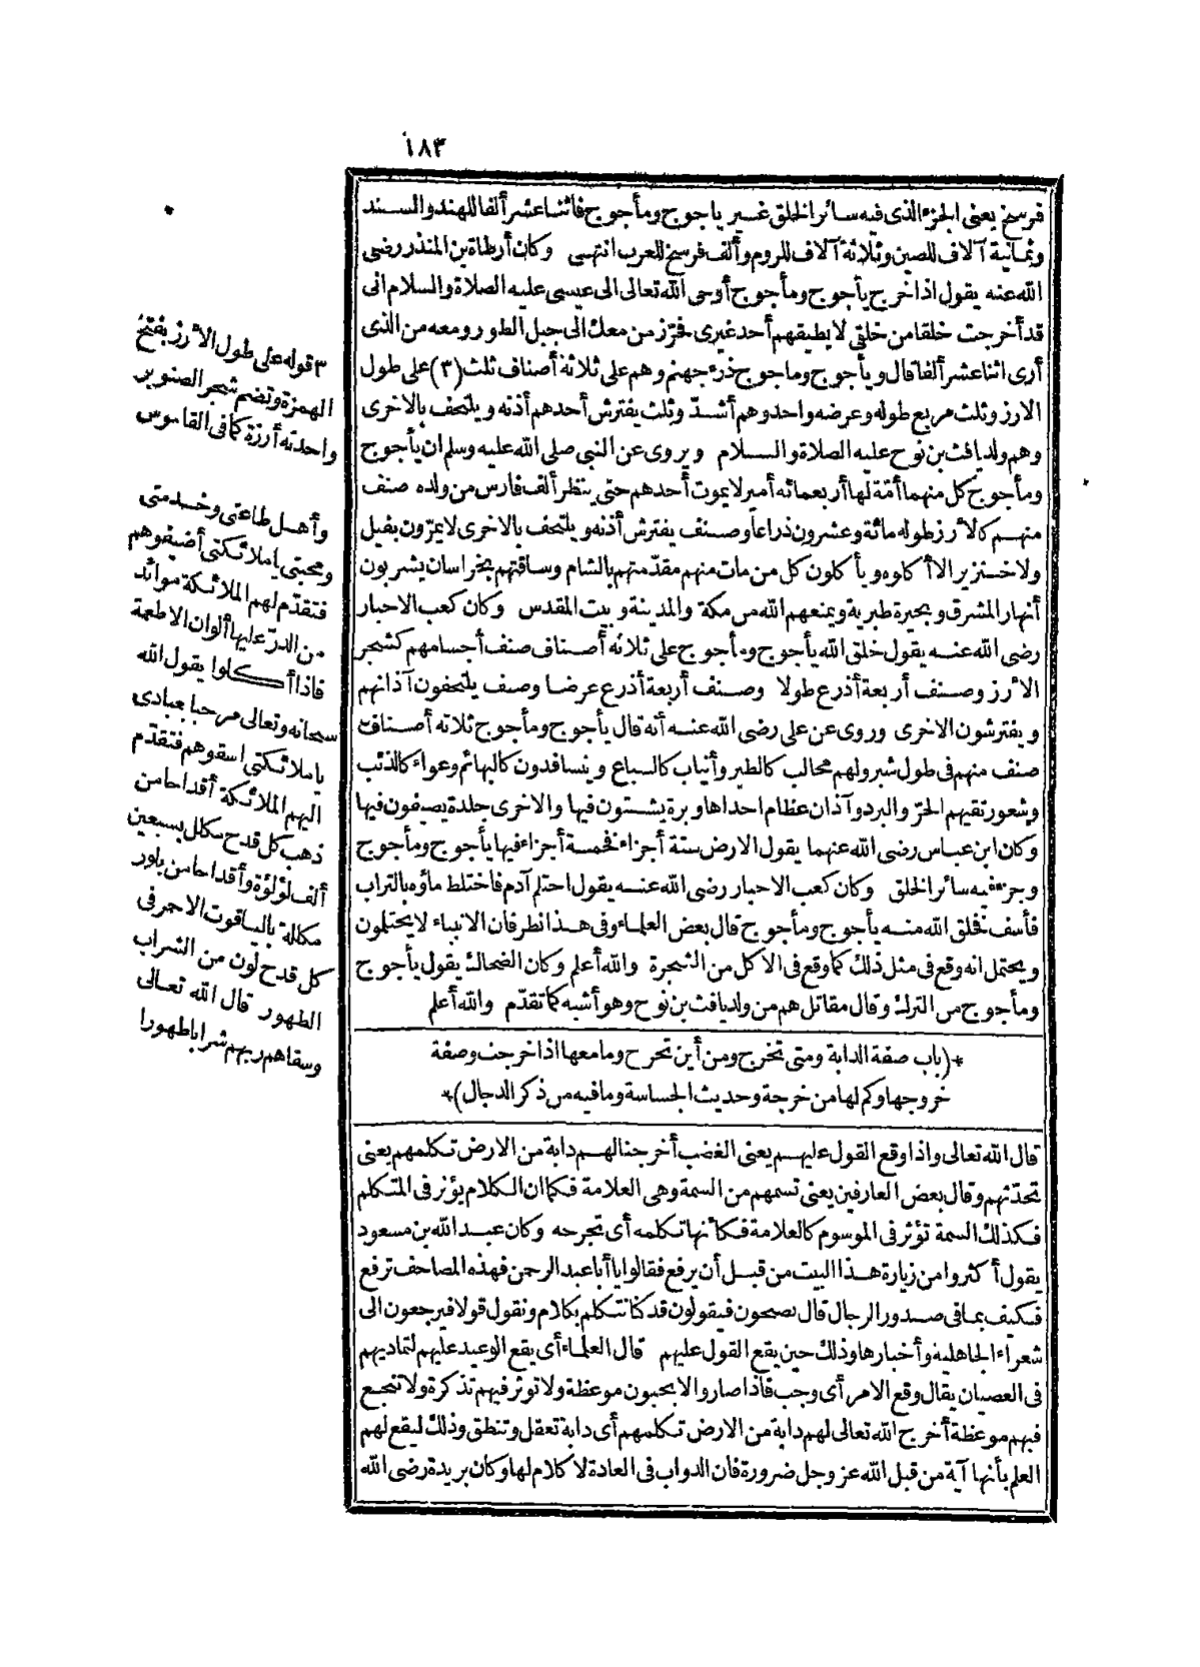 ١٨٣
فرسخ يعنى الجزء الذى فيه سائر الخلق غير ياجوج ومأجوج فاثنا عشر ألفا للهند والسند
وثمانية آلاف للصين وثلاثة آلاف للروم وألف فرسخ للعرب انتهى وكان أرطاة بن المنذر رضى
الله عنه يقول اذا خرج يأجوج ومأجوج أوحى الله تعالى الى عيسى عليه الصلاة والسلام انى
قد أخرجت خلقا من خلقى لا يطيقهم أحد غيرى فحرّز من معك الى جبل الطور ومعه من الذى
أرى اثنا عشر ألفا قال ويأجوج وماجوج ذرء جهنم وهم على ثلاثة أصناف ثلث (٣) على طول
الارز وثلث مربع طوله وعرضه واحد وهم أشدّ وثلث يفترش أحدهم أذنه ويلتحف بالاخرى
وهم ولد يافث بن نوح عليه الصلاة والسلام ويروى عن النبى صلى الله عليه وسلم ان يأجوج
ومأجوج كل منهما أمّة لها أربعمائه أمير لا يموت أحدهم حتى ينظر ألف فارس من ولده صنف
منهم كالأرز طوله مائة وعشرون ذراعا وصنف يفترش أذنه ويلتحف بالاخرى لا يمرّون بفيل
ولا خنزير الا أكلوه ويأكلون كل من مات منهم مقدّمتهم بالشام وساقتهم بخراسان يشربون
أنهار المشرق وبحيرة طبرية ويمنعهم الله من مكة والمدينة وبيت المقدس وكان كعب الاحبار
رضى الله عنه يقول خلق الله يأجوج ومأجوج على ثلاثه أصناف صنف أجسامهم كشجر
الأرز وصنف أربعة أذرع طولا وصنف أربعة أذرع عرضا وصف يلتحفون آذانهم
ويفترشون الاخرى وروى عن على رضى الله عنه أنه قال يأجوج ومأجوج ثلاثه أصناف
صنف منهم فى طول شبر ولهم مخالب كالطير وأنياب كالسباع ويتسافدون كالبهائم وعواء كالذئب
وشعور تقيهم الحرّ والبرد وآذان عظام احداها وبرة يشتون فيها والاخرى جلدة يصيفون فيها
وكان ابن عباس رضى الله عنهما يقول الارض ستة أجزاء فخمسة أجزاء فيها يأجوج ومأجوج
وجزء فيه سائر الخلق وكان كعب الاحبار رضى الله عنه يقول احتلم آدم فاختلط ماؤه بالتراب
فأسف فخلق الله منه يأجوج ومأجوج قال بعض العلماء وفى هذا نظر فان الانبياء لا يحتلمون
ويحتمل انه وقع فى مثل ذلك كما وقع فى الاكل من الشجرة والله أعلم وكان الضحاك يقول يأجوج
ومأجوج من الترك وقال مقاتل هم من ولد يافث بن نوح وهو أشبه كما تقدّم والله أعلم
*(باب صفة الدابة ومتى تخرج ومن أين تخرج وما معها اذا خرجت وصفة
خروجها وكم لها من خرجة وحديث الجساسة وما فيه من ذكر الدجال)*
قال الله تعالى واذا وقع القول عليهم يعنى الغضب أخرجنا لهم دابة من الارض تكلمهم يعنى
تحدّثهم وقال بعض العارفين يعنى تسمهم من السمة وهى العلامة فكما ان الكلام يؤثر فى المتكلم
فكذلك السمة تؤثر فى الموسوم كالعلامة فكأنها تكلمه أى تجرحه وكان عبد الله بن مسعود
يقول أكثروا من زيارة هذا البيت من قبل أن يرفع فقالوا يا أبا عبد الرحمن فهذه المصاحف ترفع
فكيف بما فى صدور الرجال قال يصبحون فيقولون قد كنا نتكلم بكلام ونقول قولا فيرجعون الى
شعراء الجاهلية وأخبارها وذلك حين يقع القول عليهم قال العلماء أى يقع الوعيد عليهم لتماديهم
فى العصيان يقال وقع الامر أى وجب فاذا صاروا لا يجيبون موعظة ولا توثر فيهم تذكرة ولا تنجع
فيهم موعظة أخرج الله تعالى لهم دابة من الارض تكلمهم أى دابة تعقل وتنطق وذلك ليقع لهم
العلم بأنها آية من قبل الله عز وجل ضرورة فان الدواب فى العادة لا كلام لها وكان بريدة رضى الله
٣ قوله على طول الأرز بفتح
الهمزة وتضم شجر الصنوبر
واحدته أرزة كما فى القاموس
وأهل طاعتى وخدمتى
ومحبتى يا ملائكتى أضيفوهم
فتقدّم لهم الملائكة موائد
من الدرّ عليها ألوان الاطعمة
فاذا أكلوا يقول الله
سبحانه وتعالى مرحبا بعبادى
يا ملائكتى اسقوهم فتقدّم
اليهم الملائكة أقداحا من
ذهب كل قدح مكلل بسبعين
ألف لؤلؤة وأقداحا من بلور
مكللة بالياقوت الاحمر فى
كل قدح لون من الشراب
الطهور قال الله تعالى
وسقاهم ربهم شرابا طهورا